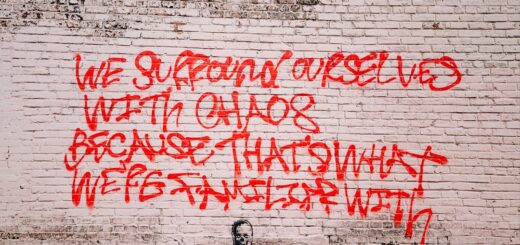 WE SURROUND OURSELVES
WITH CHAOS
BECAUSE THAT'S WHAT
WE'RE FAMILIAR WITH